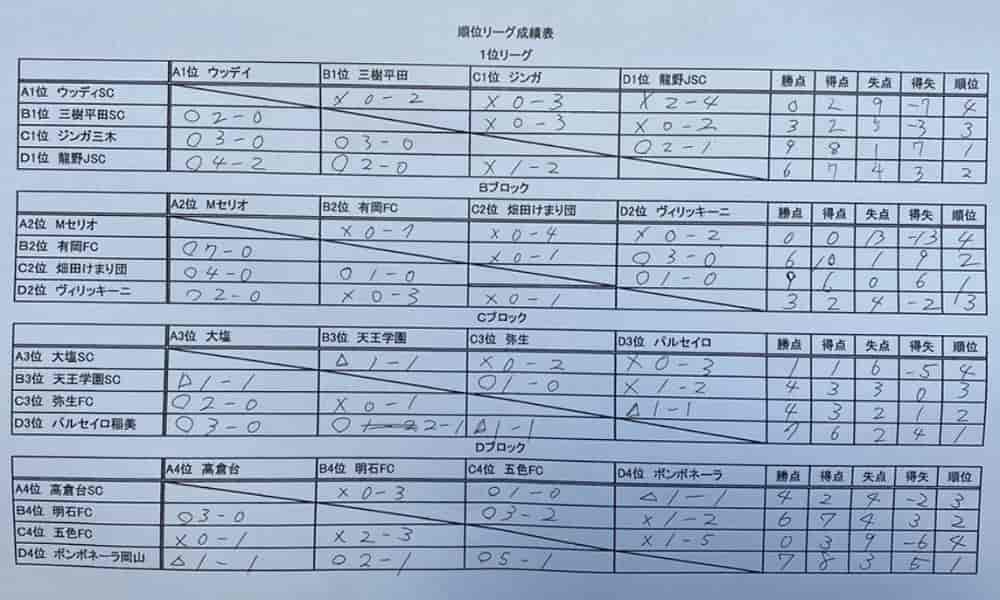 順位リーグ成績表
1位リーグ
A1位 ウッデイ B1位 三樹平田 C1位 ジンガ D1位 龍野JSC 勝点 得点 失点 得失 順位
A1位 ウッディSC × 0-2 × 0-3 × 2-4 0 2 9 -7 4
B1位 三樹平田SC ○ 2-0 × 0-3 × 0-2 3 2 5 -3 3
C1位 ジンガ三木 ○ 3-0 ○ 3-0 ○ 2-1 9 8 1 7 1
D1位 龍野JSC ○ 4-2 ○ 2-0 × 1-2 6 7 4 3 2
Bブロック
A2位 Mセリオ B2位 有岡FC C2位 畑田けまり団 D2位 ヴィリッキーニ 勝点 得点 失点 得失 順位
A2位 Mセリオ × 0-7 × 0-4 × 0-2 0 0 13 -13 4
B2位 有岡FC ○ 7-0 × 0-1 ○ 3-0 6 10 1 9 2
C2位 畑田けまり団 ○ 4-0 ○ 1-0 ○ 1-0 9 6 0 6 1
D2位 ヴィリッキーニ ○ 2-0 × 0-3 × 0-1 3 2 4 -2 3
Cブロック
A3位 大塩 B3位 天王学園 C3位 弥生 D3位 バルセイロ 勝点 得点 失点 得失 順位
A3位 大塩SC △ 1-1 × 0-2 × 0-3 1 1 6 -5 4
B3位 天王学園SC △ 1-1 ○ 1-0 × 1-2 4 3 3 0 3
C3位 弥生FC ○ 2-0 × 0-1 △ 1-1 4 3 2 1 2
D3位 バルセイロ稲美 ○ 3-0 ○ 2-1 △ 1-1 7 6 2 4 1
Dブロック
A4位 高倉台 B4位 明石FC C4位 五色FC D4位 ボンボネーラ 勝点 得点 失点 得失 順位
A4位 高倉台SC × 0-3 ○ 1-0 △ 1-1 4 2 4 -2 3
B4位 明石FC ○ 3-0 ○ 3-2 × 1-2 6 7 4 3 2
C4位 五色FC × 0-1 × 2-3 × 1-5 0 3 9 -6 4
D4位 ボンボネーラ岡山 △ 1-1 ○ 2-1 ○ 5-1 7 8 3 5 1